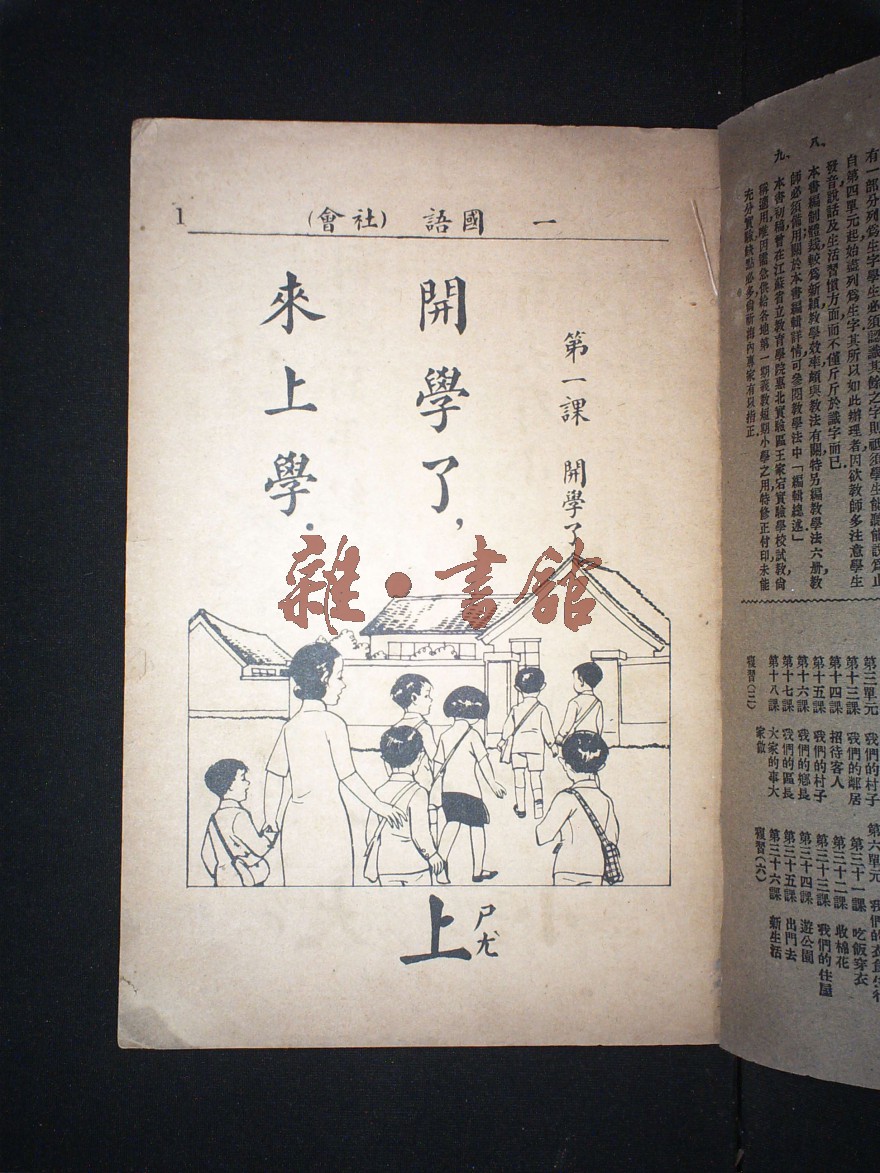 有一部分列爲生字學生必須認識其餘之字則祇須學生能聽能說爲止
自第四單元起始盡列爲生字其所以如此辦理者因欲教師多注意學生
發音說話及生活習慣方面而不僅斤斤於識字而已
八、本書編制體裁較爲新穎教學效率頗與教法有關特另編教學法六册教
師必須備用關於本書編輯詳情可參閱教學法中「編輯總述」
九、本書初稿曾在江蘇省立教育學院惠北實驗區王家宕實驗學校試教尙
稱適用唯因需急供給各地第一期義教短期小學之用特修正付印未能
充分實驗缺點必多尙祈海內專家有以指正
第三單元 我們的村子
第十三課 我們的鄰居
第十四課 招待客人
第十五課 我們的村子
第十六課 我們的鄉長
第十七課 我們的區長
第十八課 大家的事大家做
複習(三)
第六單元 我們的衣食住行
第三十一課 吃飯穿衣
第三十二課 收棉花
第三十三課 我們的住屋
第三十四課 遊公園
第三十五課 出門去
第三十六課 新生活
複習(六)
一 國語 (社會) 1
第一課 開學了
開學了，
來上學．
上 ㄕㄤ
雜·書館